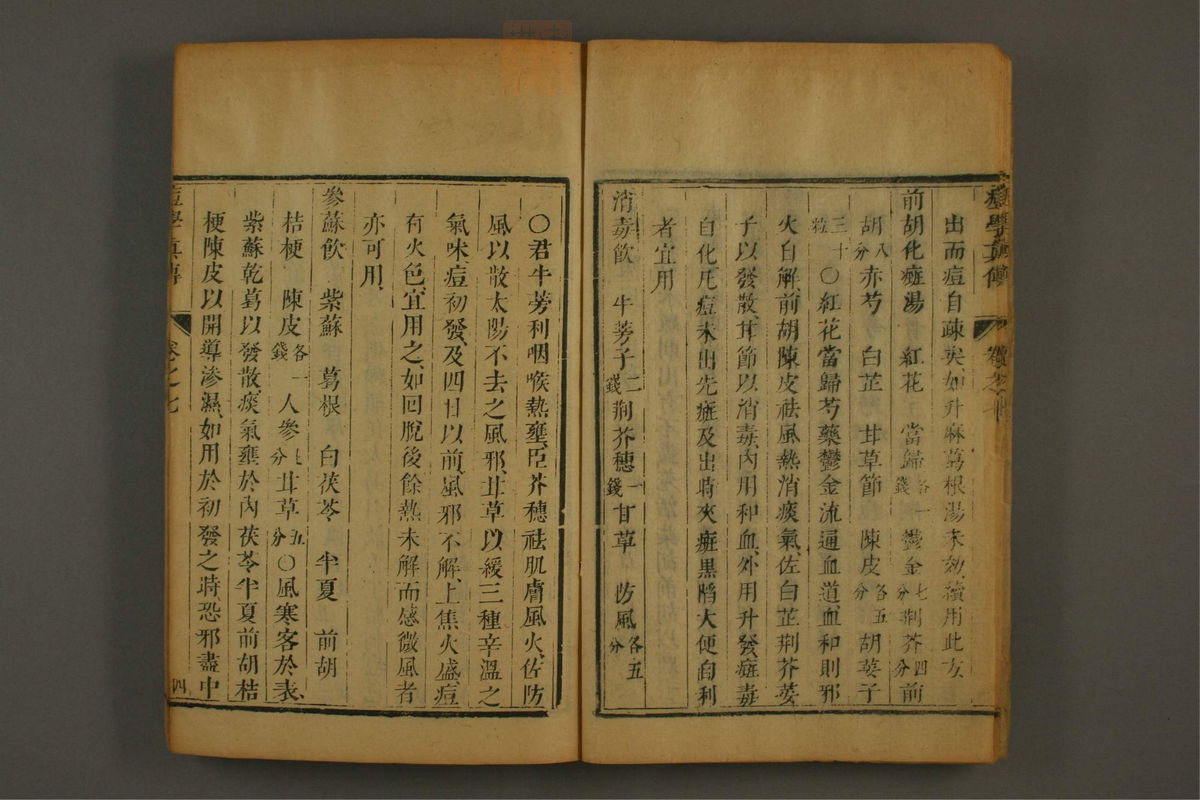 痘學真傳 卷之七
出而痘自疎矣如升麻葛根湯未效續用此方
前胡化癍湯 紅花 當歸各一錢 鬱金七分 荆芥四分 前
胡八分 赤芍 白芷 甘草節 陳皮各五分 胡荽子
三十粒 〇紅花當歸芍藥鬱金流通血道血和則邪
火自解前胡陳皮祛風熱消痰氣佐白芷荆芥荽
子以發散甘節以消毒內用和血外用升發癍毒
自化凡痘未出先癍及出時夾癍黑陷大便自利
者宜用
消毒飲 牛蒡子二錢 荆芥穗一錢 甘草 防風各五分
〇君牛蒡利咽喉熱壅臣芥穗祛肌膚風火佐防
風以散太陽不去之風邪甘草以緩三種辛溫之
氣味痘初發及四日以前風邪不解上焦火盛痘
有火色宜用之如回脫後餘熱未解而感微風者
亦可用
參蘇飲 紫蘇 葛根 白茯苓 半夏 前胡
桔梗 陳皮各一錢 人參七分 甘草五分 〇風寒客於表
紫蘇乾葛以發散痰氣壅於內茯苓半夏前胡桔
梗陳皮以開導滲濕如用於初發之時恐邪盡中
痘學真傳 卷之七 四